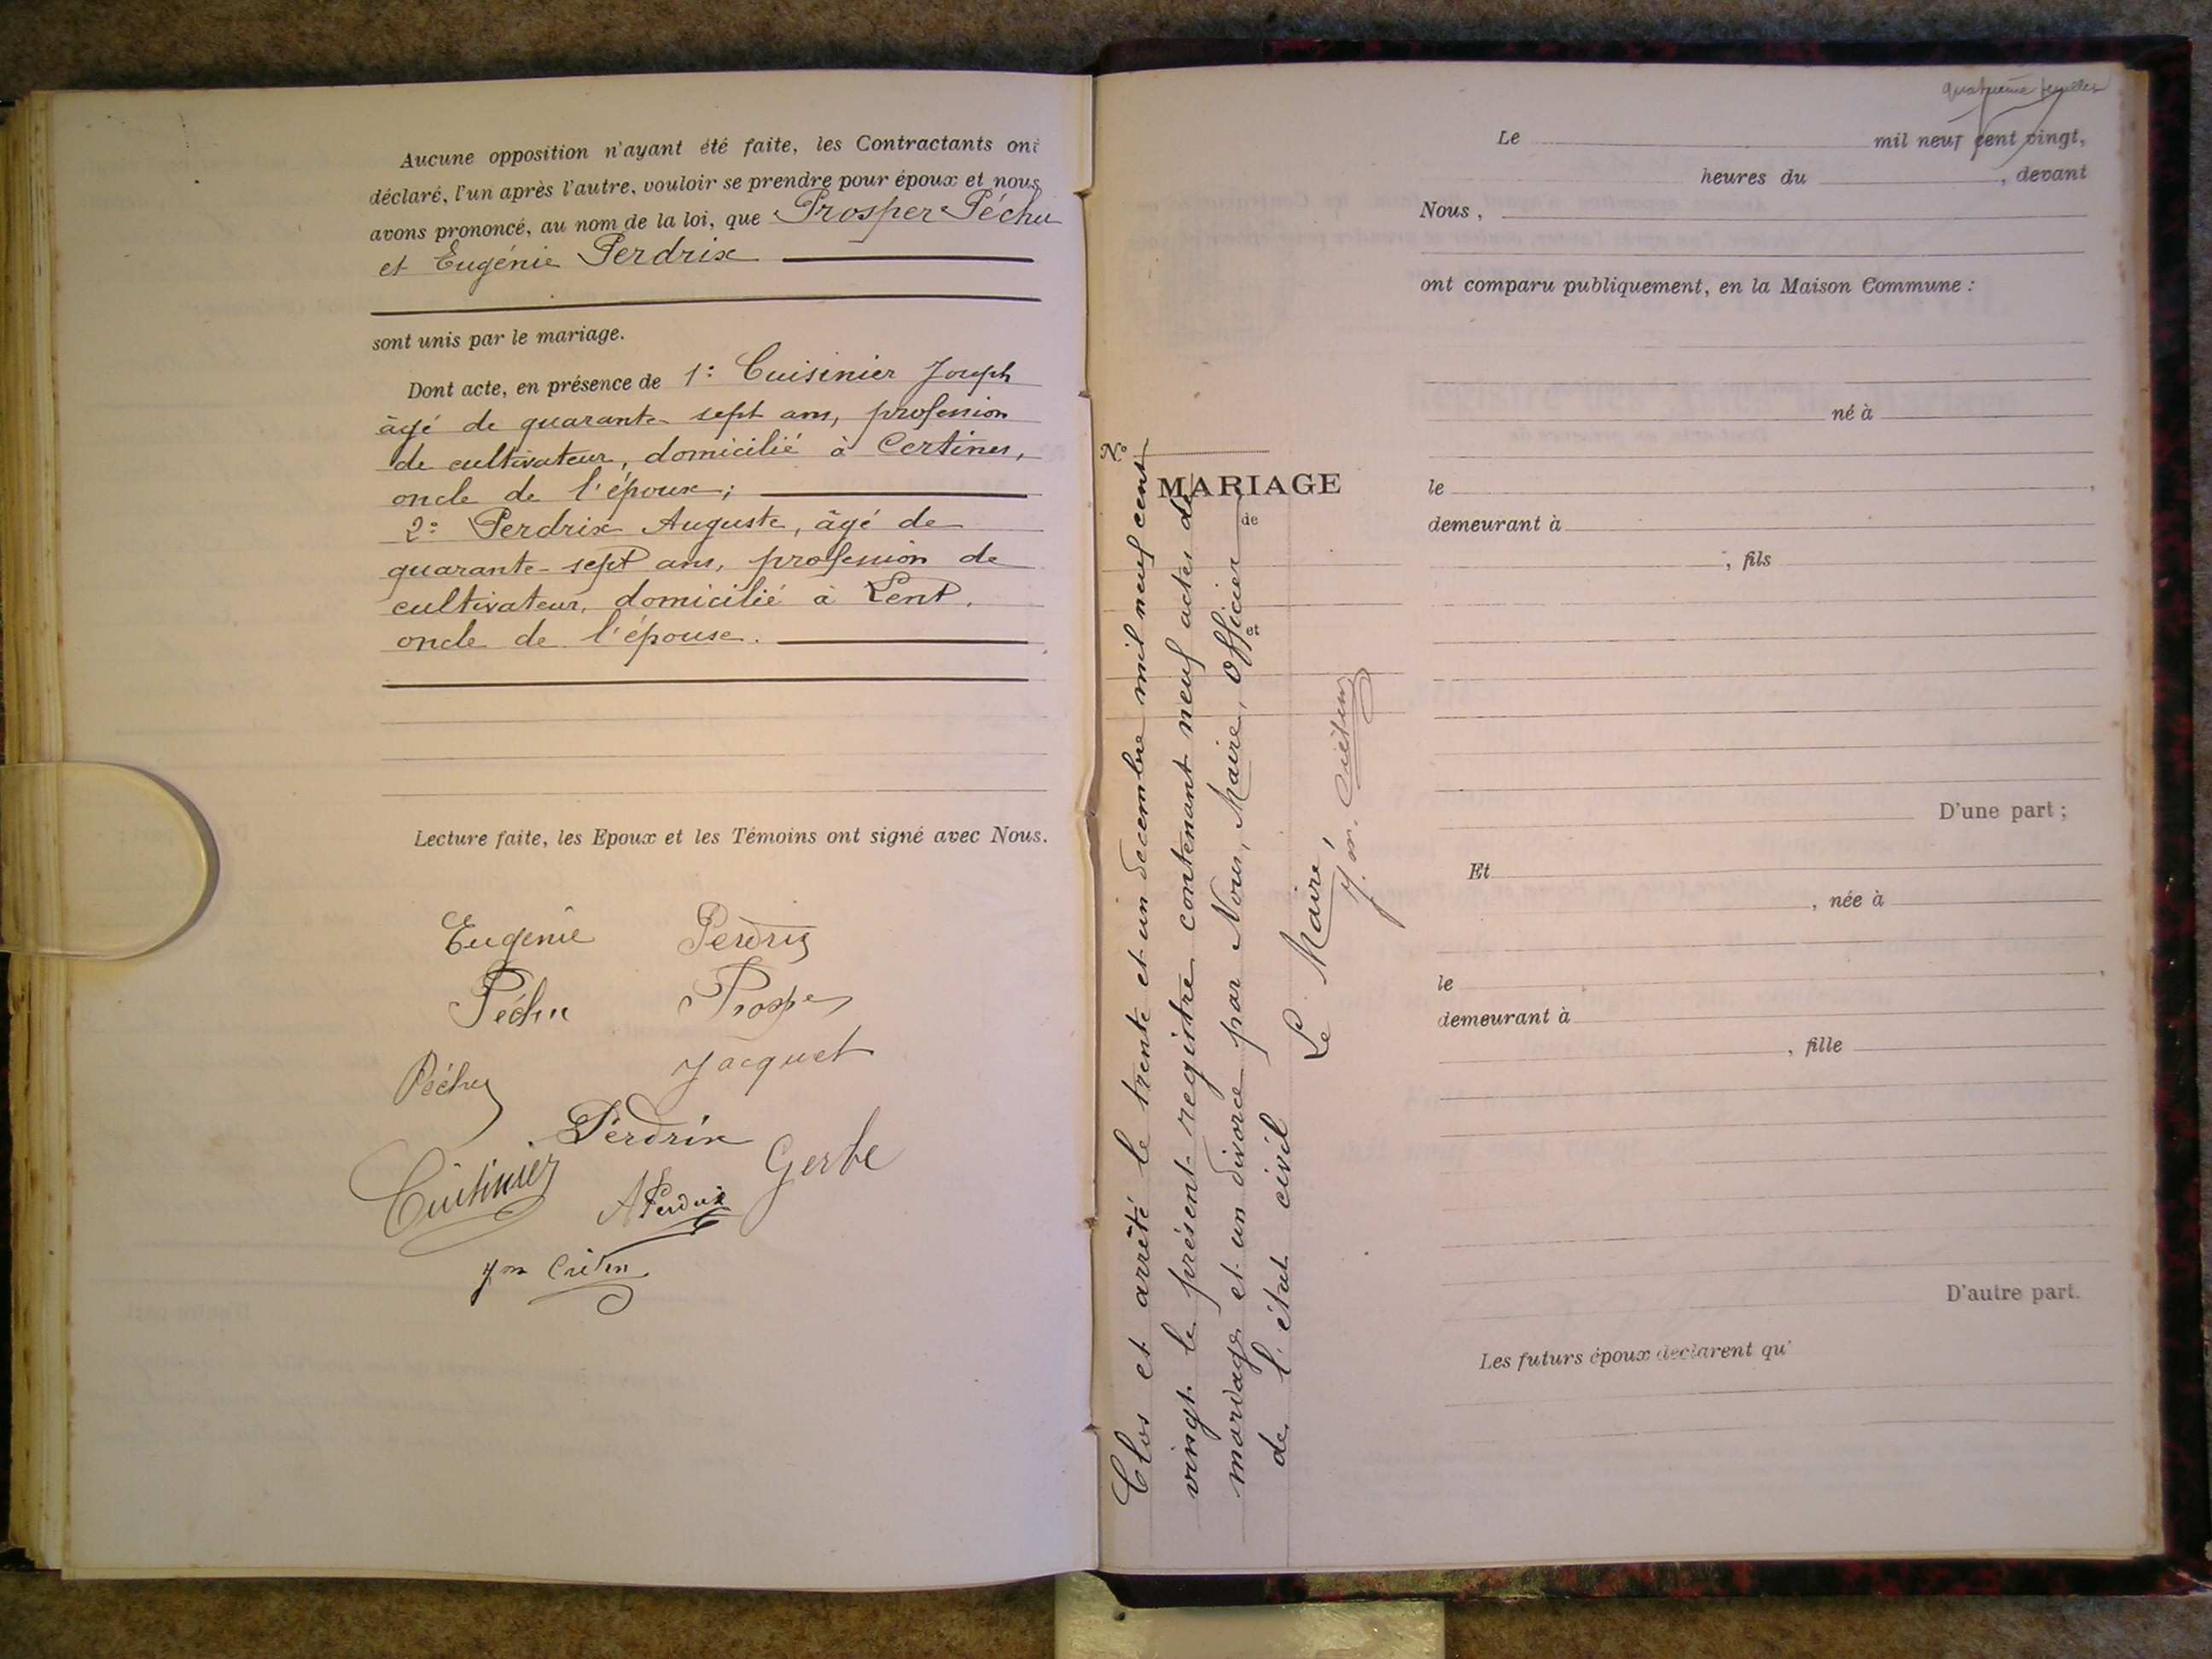 Aucune opposition n'ayant été faite, les Contractants ont
déclaré, l'un après l'autre, vouloir se prendre pour époux et nous
avons prononcé, au nom de la loi, que Prosper Péchu
et Eugénie Perdrix
sont unis par le mariage.
Dont acte, en présence de 1º Cuisinier Joseph
âgé de quarante-sept ans, profession
de cultivateur, domicilié à Certines,
oncle de l'époux;
2º Perdrix Auguste, âgé de
quarante-sept ans, profession de
cultivateur, domicilié à Lent.
oncle de l'épouse.
Lecture faite, les Epoux et les Témoins ont signé avec Nous.
Eugénie Perdrix
Péchu Prosper
Péchu Jacquet
Perdrix
Cuisinier A Perdrix Gerbe
Clos et arrêté le trente et un décembre mil neuf cent
vingt le présent registre contenant neuf actes de
mariage et un divorce par Nous, Maire, officier
de l'état civil
Le Maire,
Nº
MARIAGE
de
et
Le mil neuf cent vingt,
heures du , devant
Nous,
ont comparu publiquement, en la Maison Commune :
né à
le ,
demeurant à
, fils
D'une part ;
Et
, née à
le ,
demeurant à
, fille
D'autre part.
Les futurs époux declarent qu'